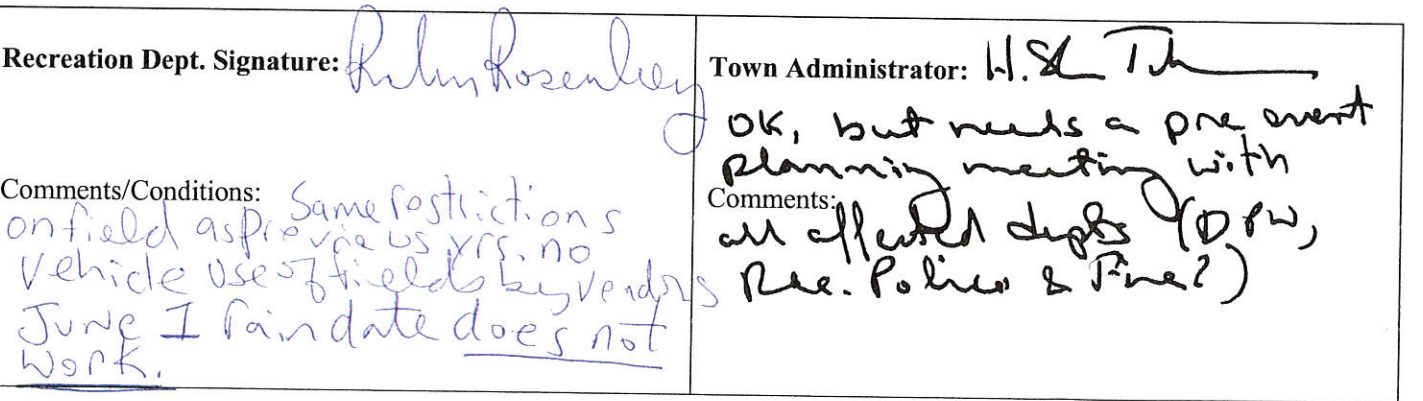 Recreation Dept. Signature: Rosenberg
Comments/Conditions: Same restrictions
on field as previous yrs. no
vehicle use of fields by vendors
June 1 raindate does not
work.
Town Administrator: H.
OK, but needs a pre event
planning meeting with
Comments:
all affected depts (DPW,
Rec. Police & Fire?)